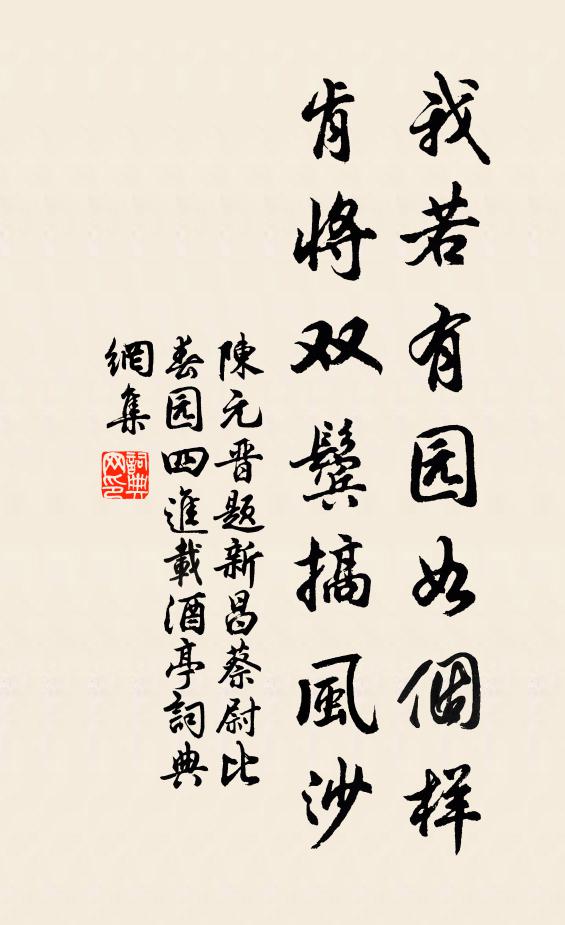 我若有园如個样
肯将双鬓搞風沙
陳元晋题新昌蔡尉比
春园四進載酒亭詞典
網集
詞典网印